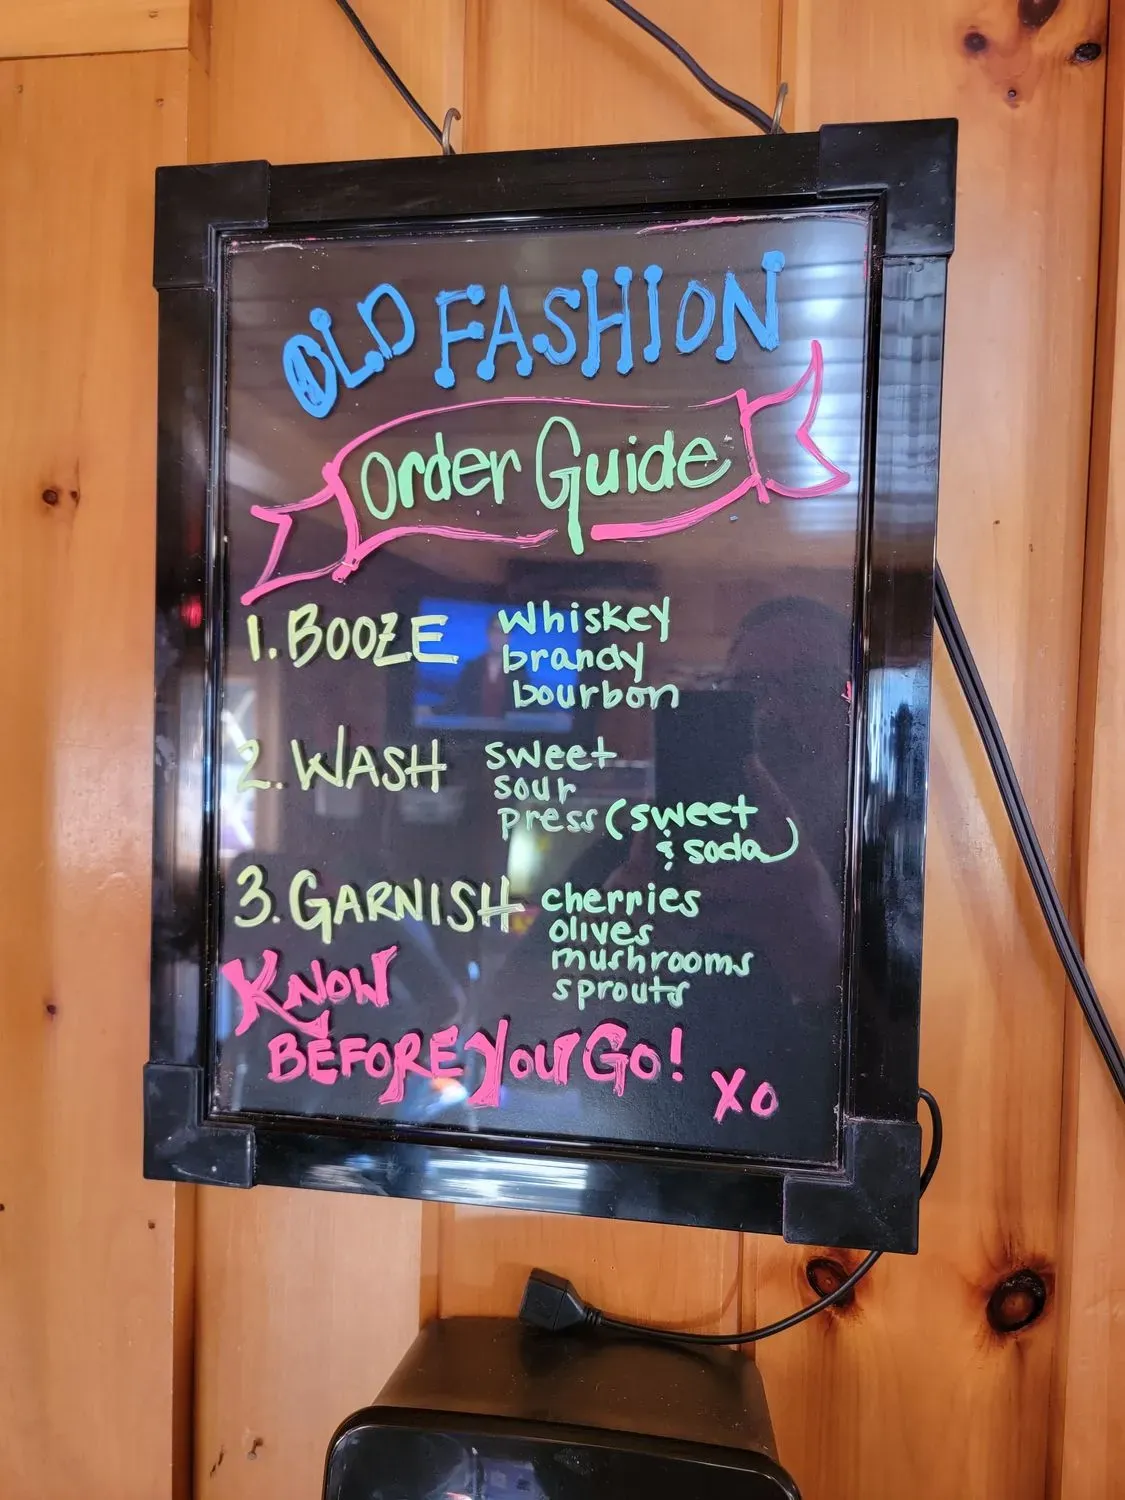 OLD FASHION
Order Guide
1. BOOZE whiskey
brandy
bourbon
2. WASH sweet
sour
press (sweet
& soda)
3. GARNISH cherries
olives
mushrooms
sprouts
KNOW
BEFORE YOU GO!
XO